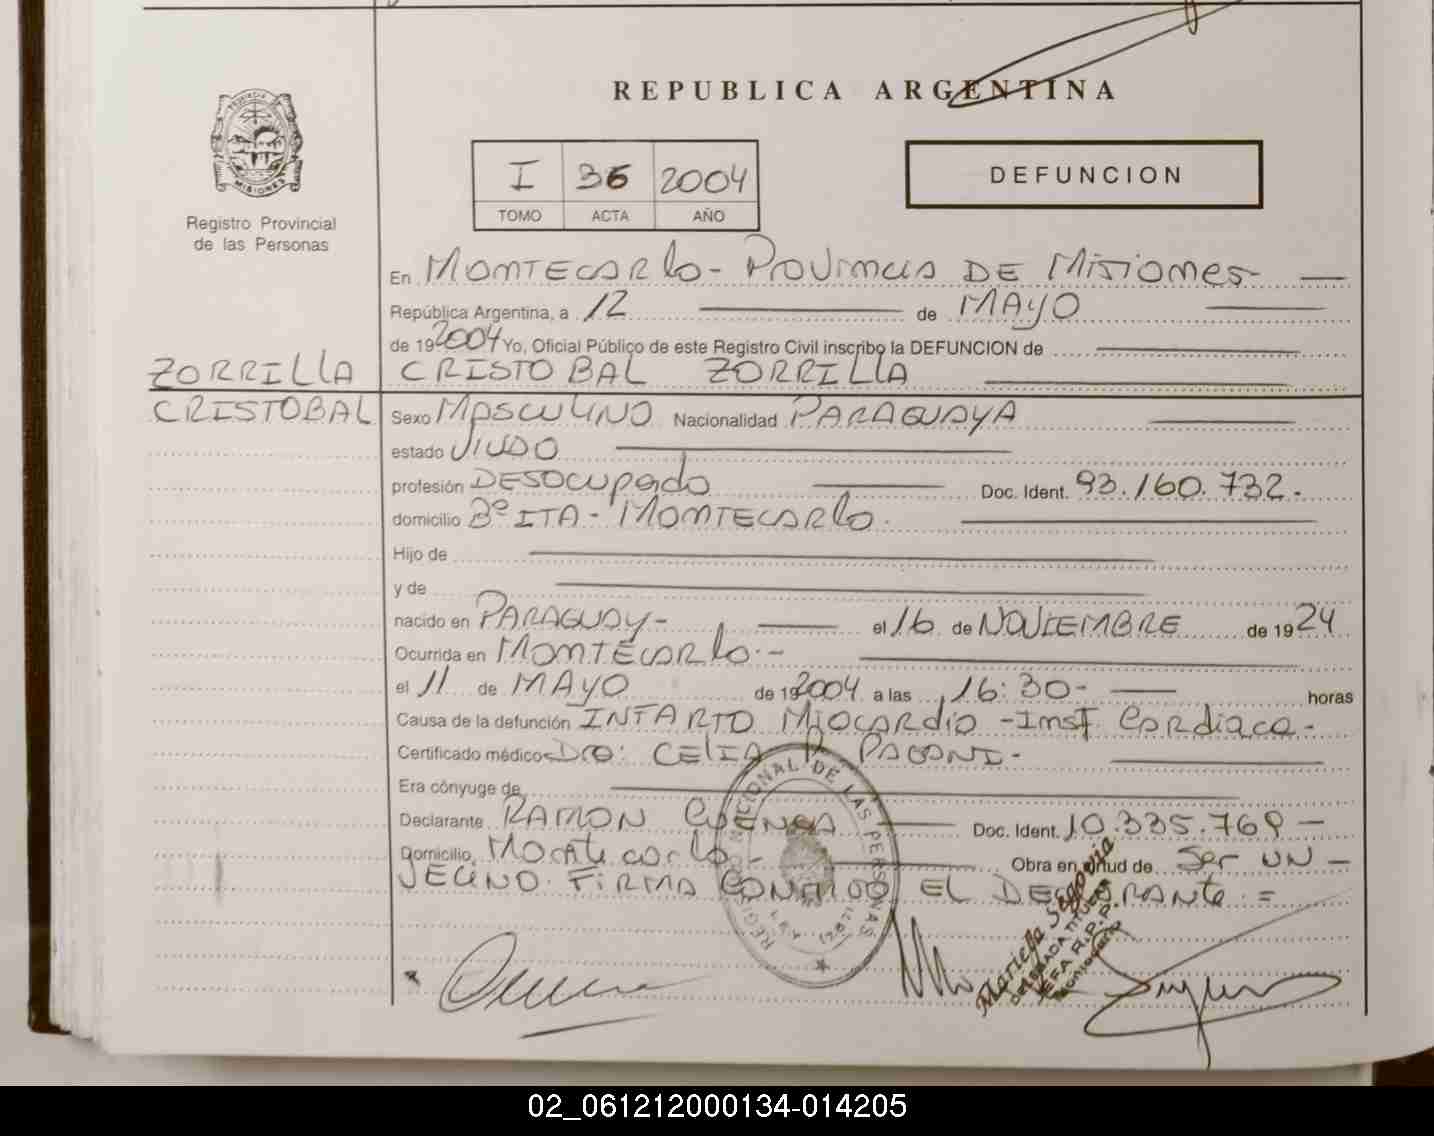 REPUBLICA ARGENTINA
PROVINCIA DE
MISIONES
Registro Provincial
de las Personas
I 36 2004
TOMO ACTA AÑO
DEFUNCION
En MONTECARLO - PROVINCIA DE MISIONES
República Argentina, a 12 de MAYO
de 19 2004 Yo, Oficial Público de este Registro Civil inscribo la DEFUNCION de
ZORRILLA CRISTOBAL ZORRILLA
CRISTOBAL Sexo MASCULINO Nacionalidad PARAGUAYA
estado VIUDO
profesión DESOCUPADO Doc. Ident. 93.160.732.
domicilio Bº ITA - MONTECARLO.
Hijo de
y de
nacido en PARAGUAY - el 16 de NOVIEMBRE de 1924
Ocurrida en MONTECARLO.-
el 11 de MAYO de 19 2004 a las 16:30- horas
Causa de la defunción INFARTO MIOCARDIO - Insf. Cardiaca -
Certificado médico Dra: CELIA P. PAGANI -
Era cónyuge de
Declarante RAMON CUENCA Doc. Ident. 10.335.769 -
Domicilio Montecarlo - Obra en virtud de Ser UN -
VECINO. FIRMA CONMIGO EL DECLARANTE =
REGISTRO NACIONAL DE LAS PERSONAS
Mariela Segovia
JEFA R.P.P.
Montecarlo
02_061212000134-014205